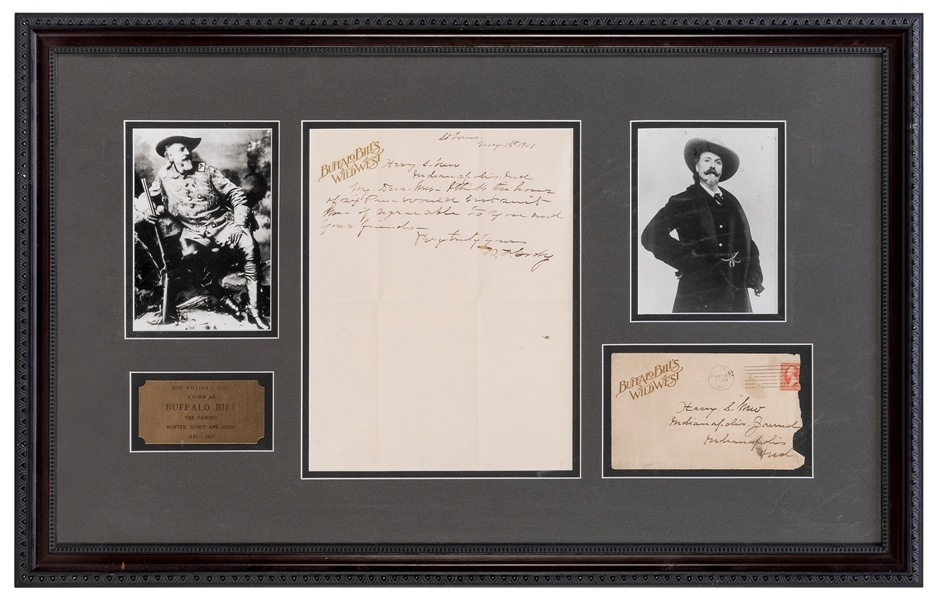 St Louis.
May 18th 1901
BUFFALO BILL'S
WILD WEST
Harry S. New
Indianapolis Ind
My Dear New I think the hour
of six P.M. would best suit
if agreeable to you and
your friends—
Very truly yours
W. F. Cody
HON. WILLIAM F. CODY
KNOWN AS
BUFFALO BILL
THE FAMOUS
HUNTER, SCOUT AND GUIDE
BUFFALO BILL'S
WILD WEST
Harry S. New
Indianapolis Journal
Indianapolis
Ind